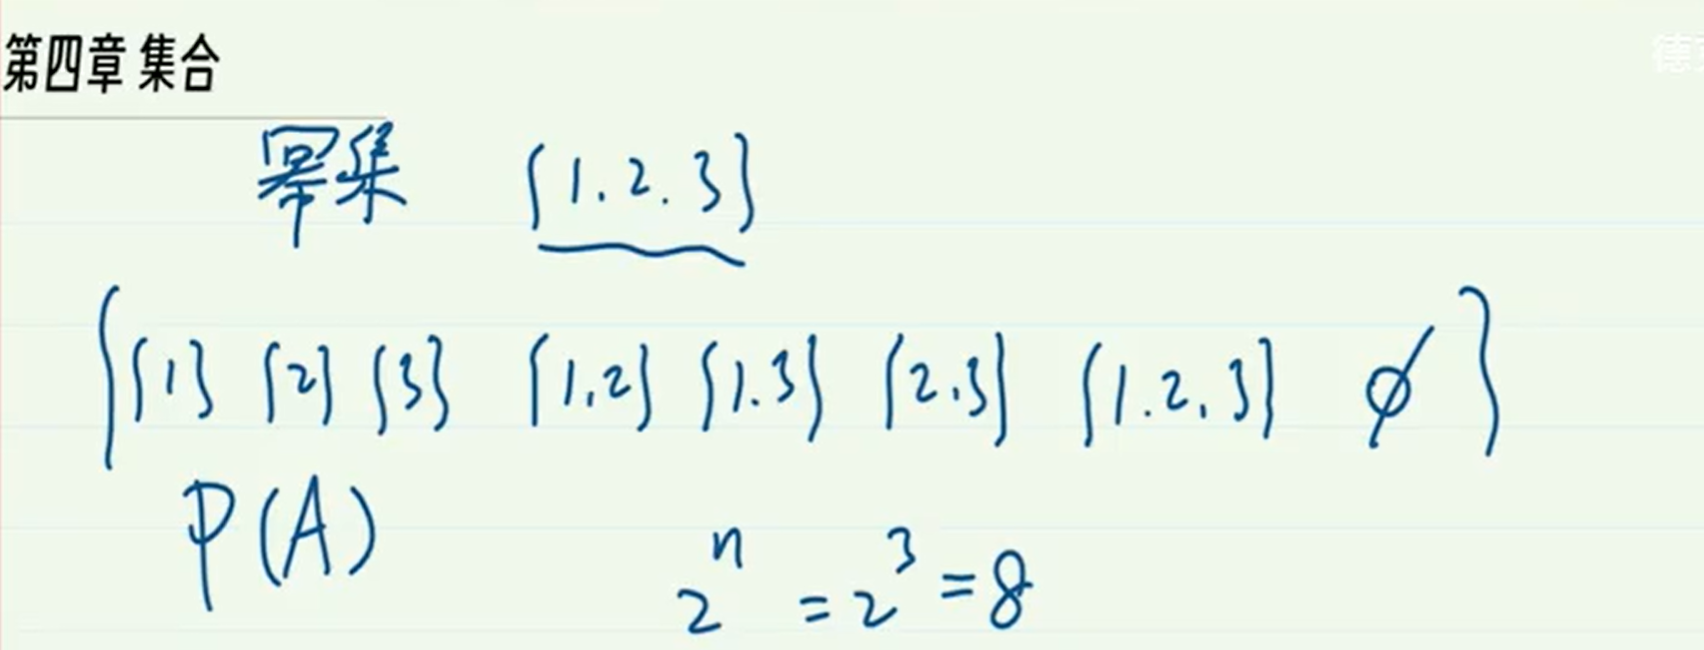 第四章 集合
德
幂集 {1.2.3}
{{1} {2} {3} {1,2} {1.3} {2.3} {1.2.3} ∅}
P(A)
2ⁿ = 2³ = 8